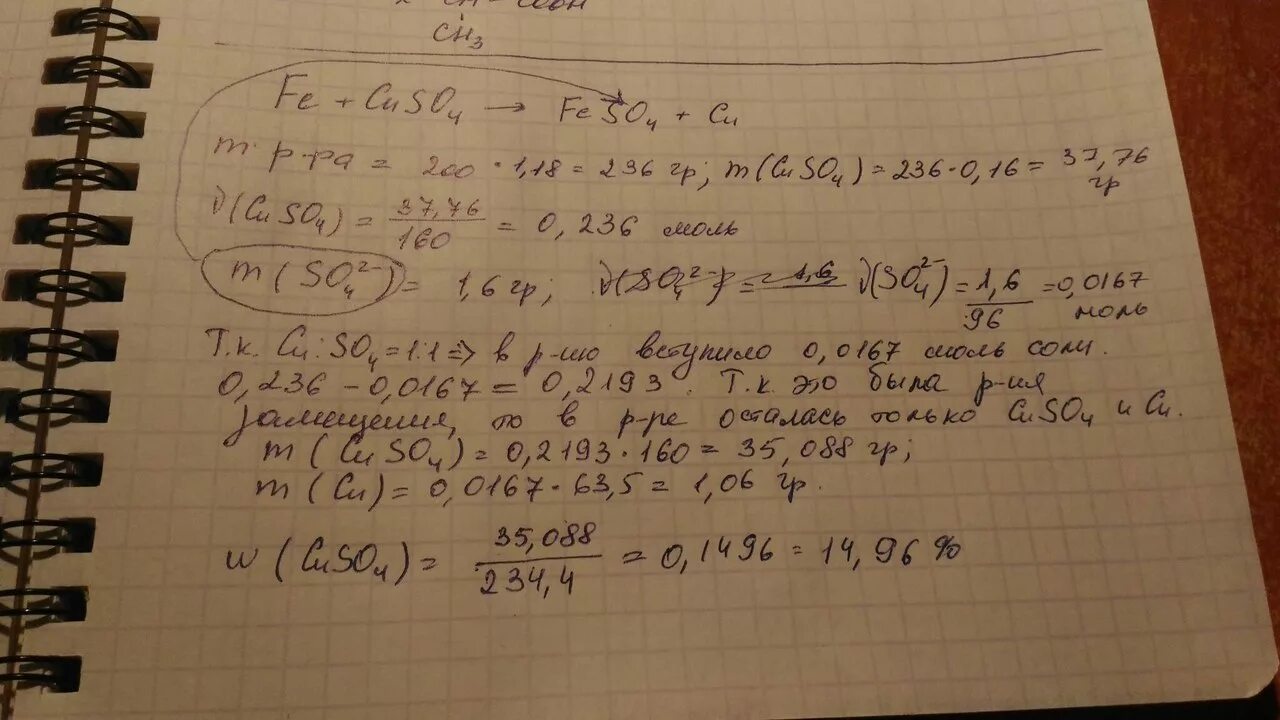 CH₃
Fe + CuSO₄ → FeSO₄ + Cu
m р-ра = 200 · 1,18 = 236 гр; m(CuSO₄) = 236 · 0,16 = 37,76 гр
ν(CuSO₄) = 37,76/160 = 0,236 моль
m(SO₄²⁻) = 1,6 гр; ν(SO₄²⁻) = 1,6 ν(SO₄²⁻) = 1,6/96 = 0,0167 моль
Т.к. Cu:SO₄ = 1:1 => в р-ию вступило 0,0167 моль соли.
0,236 - 0,0167 = 0,2193. Т.к. это была р-ия
замещения, то в р-ре осталась только CuSO₄ и Cu.
m(CuSO₄) = 0,2193 · 160 = 35,088 гр;
m(Cu) = 0,0167 · 63,5 = 1,06 гр.
w(CuSO₄) = 35,088/234,4 = 0,1496 = 14,96 %